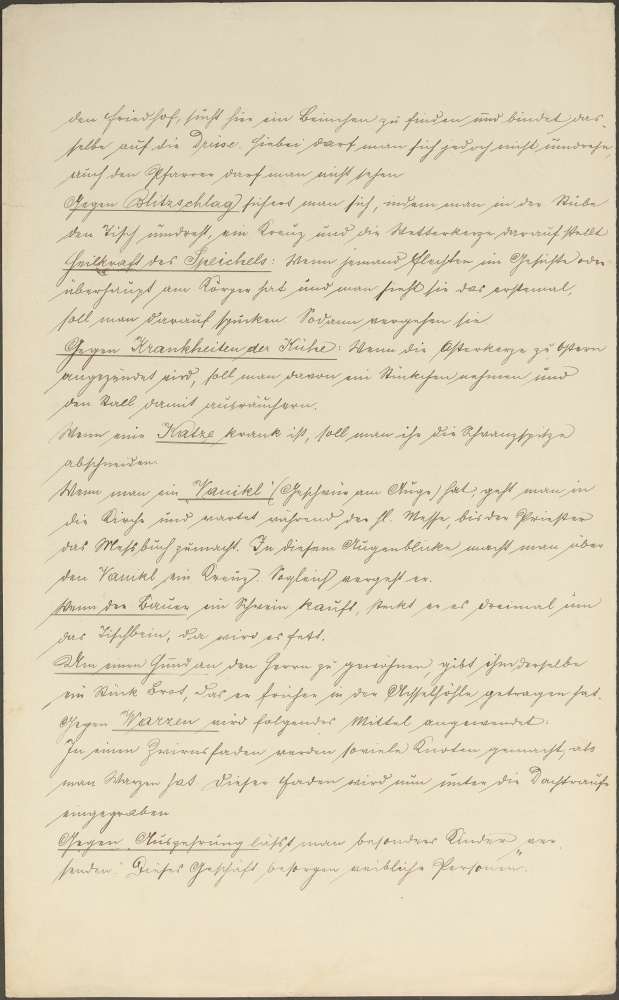 den Friedhof, sucht hier ein Beinchen zu finden und bindet das-
selbe auf die Drüse. Hiebei darf man sich jedoch nicht umdrehn,
auch den Pfarrer darf man nicht sehen
Gegen Blitzschlag sichert man sich, indem man in der Stube
den Tisch umdreht, ein Kreuz und die Wetterkerze darauf stellt
Heilkraft des Speichels: Wenn jemand Flechten im Gesichte oder
überhaupt am Körper hat und man sieht sie das erstemal,
soll man darauf spucken. Sodann vergehen sie
Gegen Krankheiten der Kühe: Wenn die Osterkerze zu Ostern
angezündet wird, soll man davon ein Stückchen nehmen und
den Stall damit ausräuchern.
Wenn eine Katze krank ist, soll man ihr die Schwanzspitze
abschneiden.
Wenn man ein "Vanikl" (Geschwür am Auge) hat, geht man in
die Kirche und wartet während der hl. Messe, bis der Priester
das Messbuch zumacht. In diesem Augenblicke macht man über
den Vanikl ein Kreuz. Sogleich vergeht er.
Wenn der Bauer ein Schwein kauft, steckt er es dreimal um
das Tischbein, da wird es fett.
Um einen Hund an den Herrn zu gewöhnen, gibt ihm derselbe
ein Stück Brot, das er früher in der Achselhöhle getragen hat.
Gegen Warzen wird folgendes Mittel angewendet:
In einen Zwirnsfaden werden soviele Knoten gemacht, als
man Warzen hat. Dieser Faden wird nun unter die Dachtraufe
eingegraben
Gegen Auszehrung lässt man besonders Kinder "ver-
senden. Dieses Geschäft besorgen weibliche Personen".